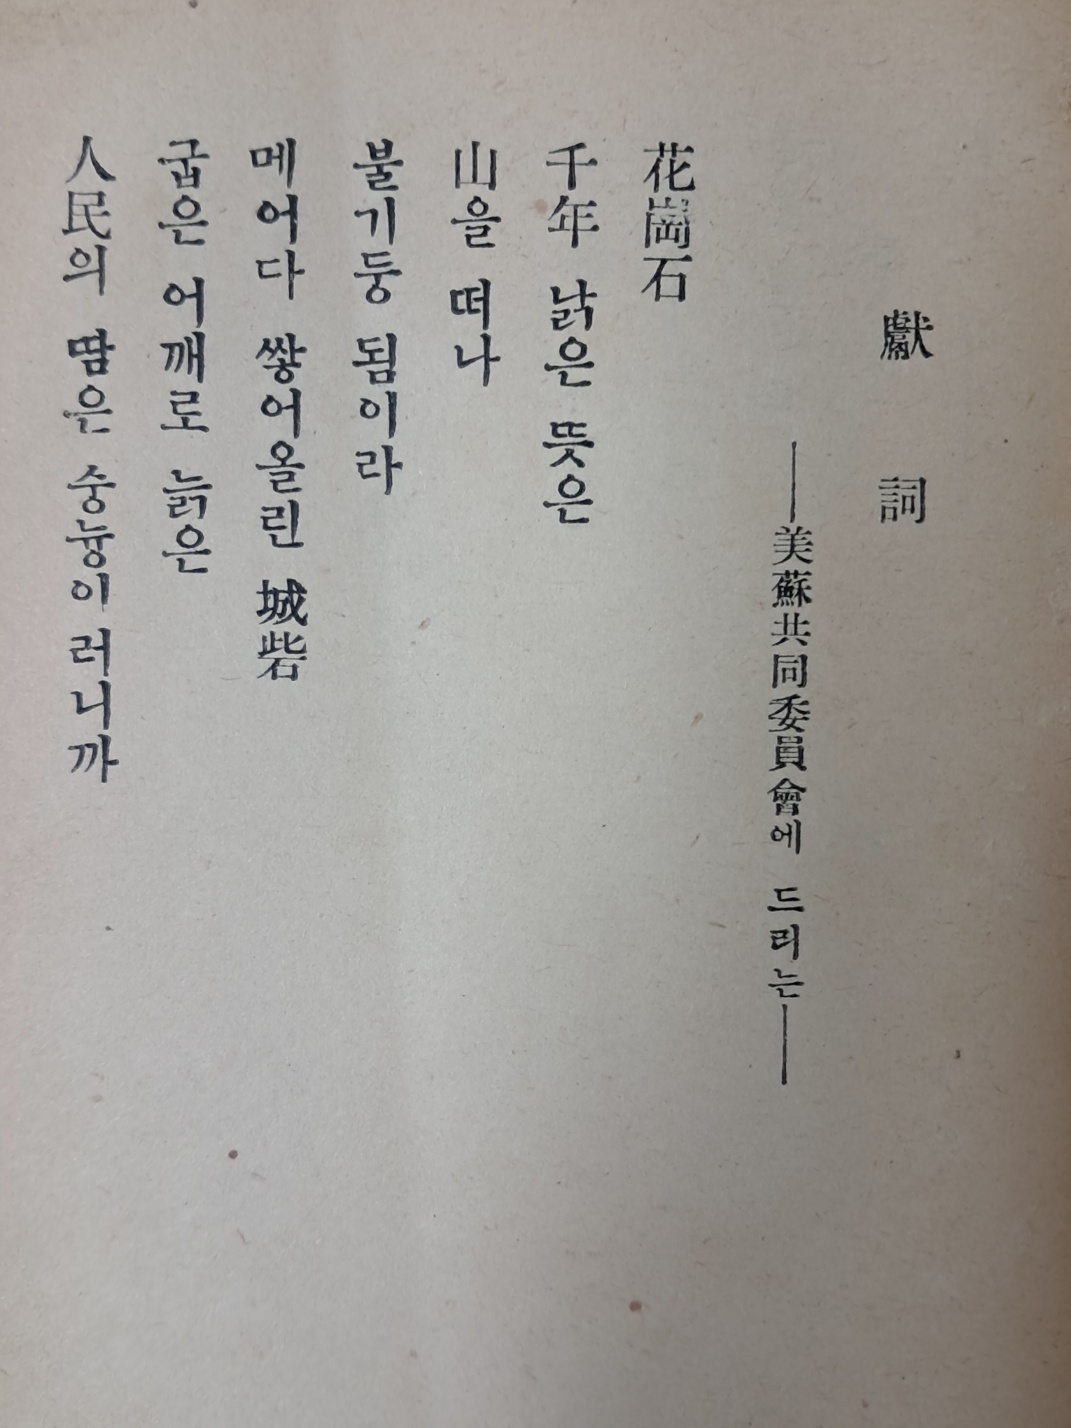 獻詞
——美蘇共同委員會에 드리는——
花崗石
千年 낡은 뜻은
山을 떠나
불기둥 됨이라
메어다 쌓어올린 城砦
굽은 어깨로 늙은
人民의 땀은 숭늉이러니까